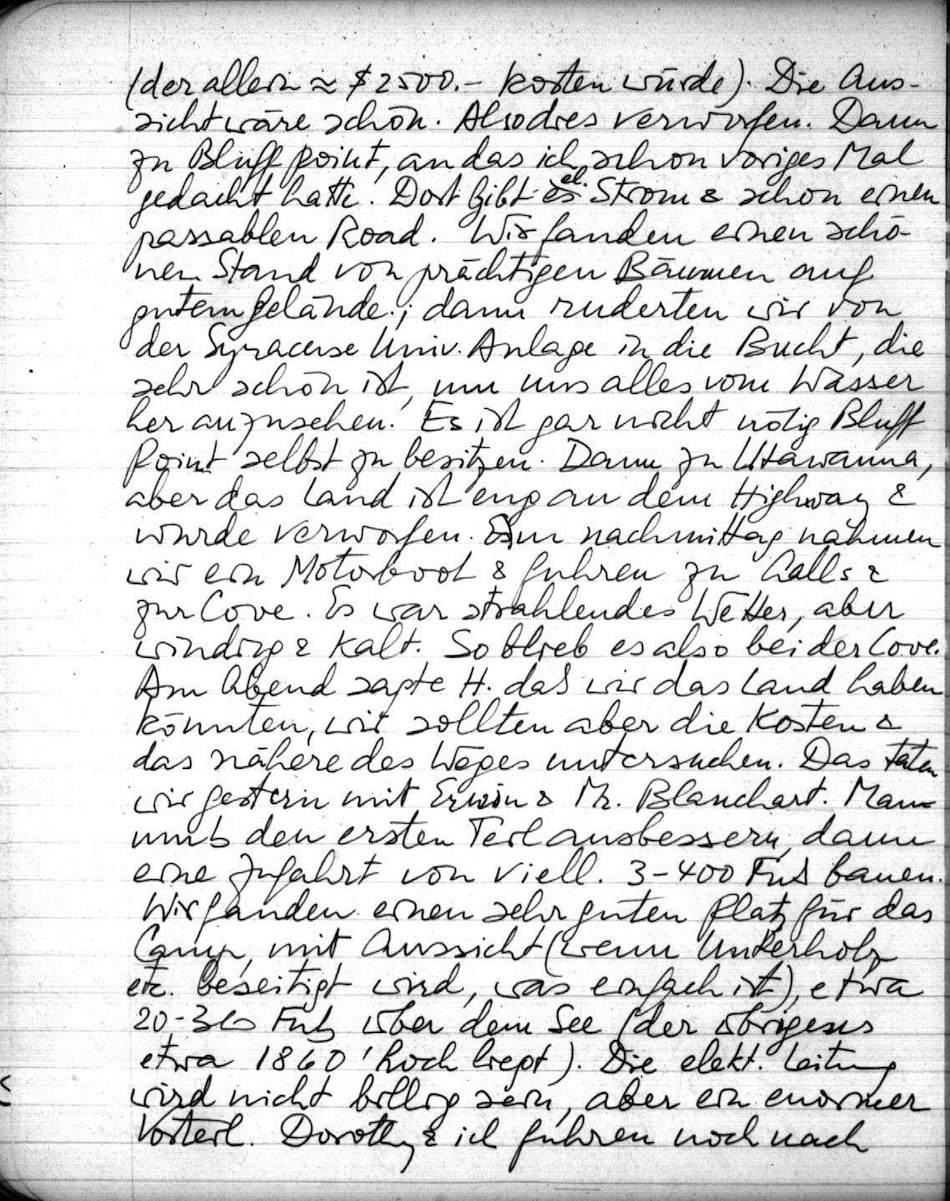 (der allein ≈ $2500.- kosten würde). Die Aus-
sicht wäre schön. Also dies verworfen. Dann
zu Bluff point, an das ich schon voriges Mal
gedacht hatte. Dort gibt es el. Strom & schon einen
passablen Road. Wir fanden einen schö-
nen Stand von prächtigen Bäumen auf
gutem Gelände; dann ruderten wir von
der Syracuse Univ. Anlage in die Bucht, die
sehr schön ist, um uns alles vom Wasser
her anzusehen. Es ist gar nicht nötig Bluff
Point selbst zu besitzen. Dann zu Utawanna,
aber das Land ist eng an dem Highway &
wurde verworfen. Am nachmittag nahmen
wir ein Motorboot & fuhren zu Halls &
zur Cove. Es war strahlendes Wetter, aber
windig & kalt. So blieb es also bei der Cove.
Am Abend sagte H. daß wir das Land haben
könnten, wir sollten aber die Kosten &
das nähere des Weges untersuchen. Das taten
wir gestern mit Erwin & Mr. Blanchart. Man
muß den ersten Teil ausbessern, dann
eine Zufahrt von viell. 3-400 Fuß bauen.
Wir fanden einen sehr guten Platz für das
Camp, mit Aussicht (wenn Unterholz
etc. beseitigt wird, was einfach ist), etwa
20-30 Fuß über dem See (der übrigens
etwa 1860' hoch liegt). Die elekt. Leitung
wird nicht billig sein, aber ein enormer
Vorteil. Dorothy & ich fuhren noch nach